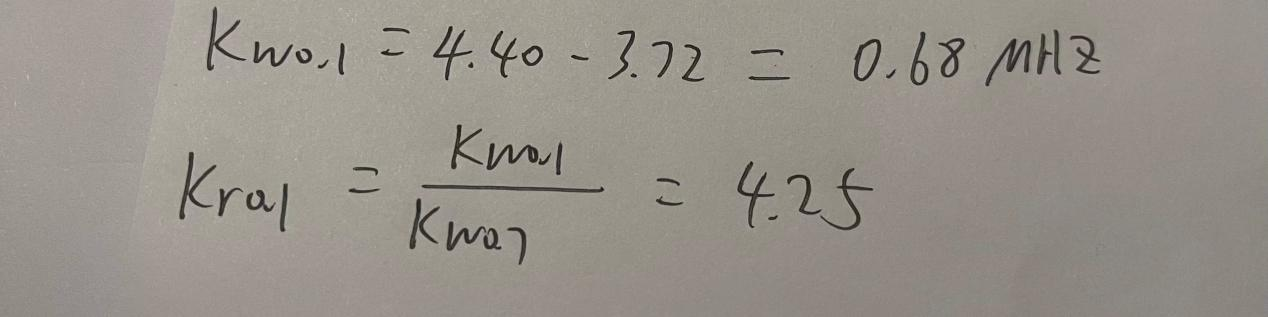 Kw0.1 = 4.40 - 3.72 = 0.68 MHz
Kr0.1 = Kw0.1 / Kw0.7 = 4.25